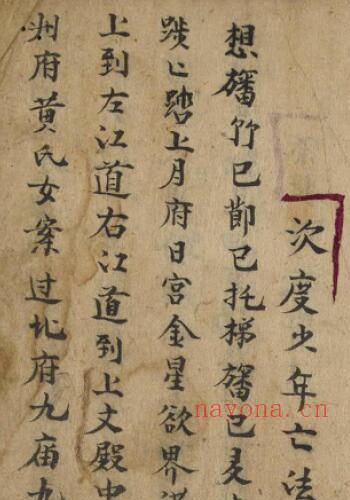 次度少年亡法
想旛竹巳節巳托梯旛巳
踄辷踏上月府日宮金星欲界
上到左江道右江道到上文殿中
州府黄氏女案过北府九庙九
nayona.cn